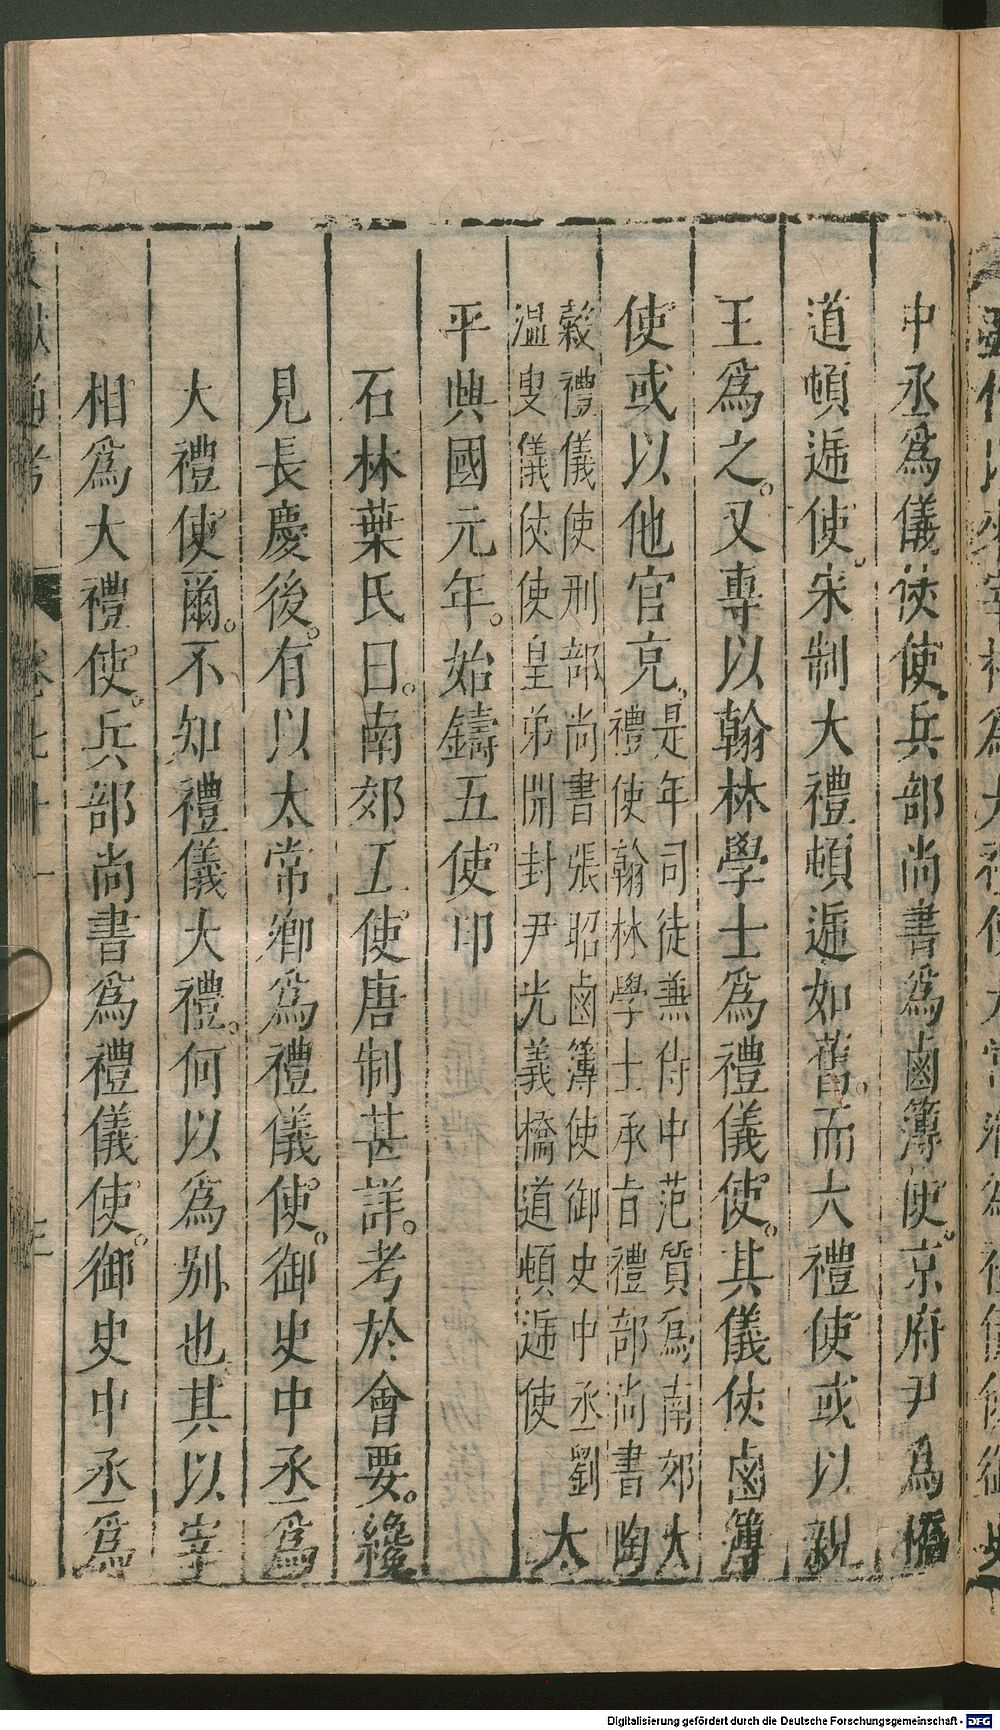 中丞爲儀仗使。兵部尚書爲鹵簿使。京府尹爲橋
道頓逓使。宋制大禮頓逓如舊。而大禮使或以親
王爲之。又專以翰林學士爲禮儀使。其儀仗鹵簿
使或以他官充。
是年司徒兼侍中范質爲南郊大
禮使翰林學士承旨禮部尚書陶
穀禮儀使刑部尚書張昭鹵簿使御史中丞劉
温叟儀仗使皇弟開封尹光義橋道頓逓使
太
平興國元年。始鑄五使印
石林葉氏曰。南郊五使唐制甚詳。考於會要。纔
見長慶後。有以太常卿爲禮儀使。御史中丞爲
大禮使爾。不知禮儀大禮。何以爲别也其以宰
相爲大禮使。兵部尚書爲禮儀使。御史中丞爲
Digitalisierung gefördert durch die Deutsche Forschungsgemeinschaft - DFG